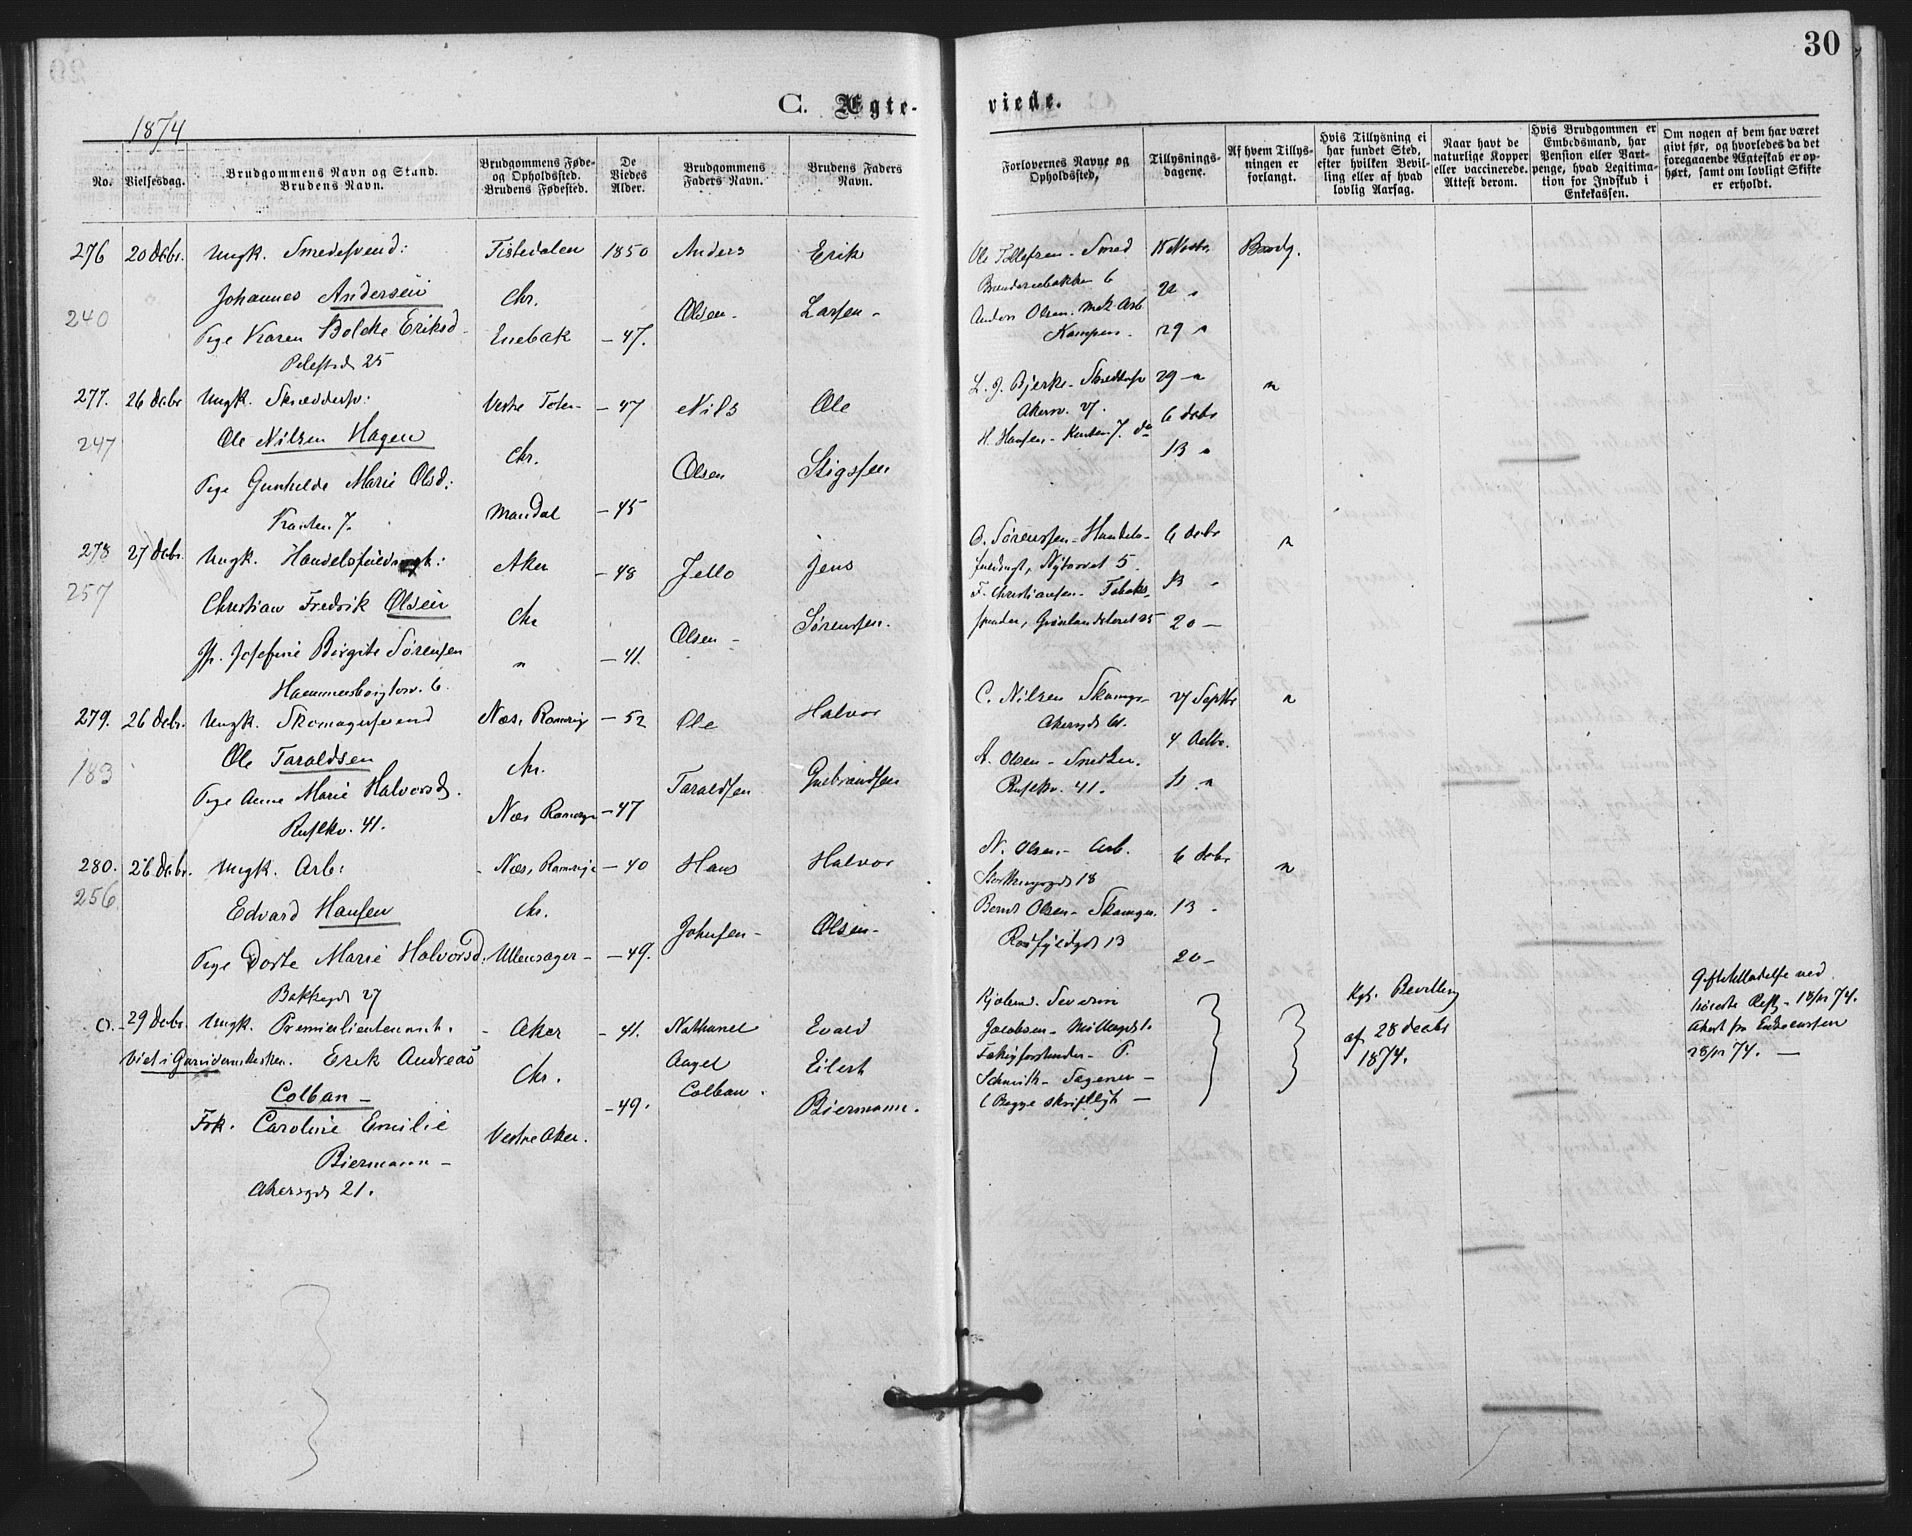 30
C. Ægte-
viede.
1874
No.
Vielsesdag.
Brudgommens Navn og Stand.
Brudens Navn.
Brudgommens Føde-
og Opholdssted.
Brudens Fødested.
De
Viedes
Alder.
Brudgommens
Faders Navn.
Brudens Faders
Navn.
Forlovernes Navne og
Opholdssted,
Tillysnings-
dagene.
Af hvem Tillys-
ningen er
forlangt.
Hvis Tillysning ei
har fundet Sted,
efter hvilken Bevil-
ling eller af hvad
lovlig Aarsag.
Naar havt de
naturlige Kopper
eller vaccinerede.
Attest derom.
Hvis Brudgommen er
Embedsmand, har
Pension eller Vart-
penge, hvad Legitima-
tion for Indskud i
Enkekassen.
Om nogen af dem har været
givt før, og hvorledes da det
foregaaende Ægteskab er op-
hørt, samt om lovligt Skifte
er erholdt.
276 20 Decbr. Ungk. Smedesvend: Tistedalen 1850 Anders Erik
Johannes Andersen Chr. Olsen - Larsen -
240
Pige Karen Bolette Eriksd. Enebak - 47.
Pilestrd 25
Ole Tollefsen - Smed 15 Novbr. Brudg.
6 22 "
Anders Olsen. Mek Arb
Kampen. 29 "
277. 26 Decbr Ungk. Skræddersv: Vestre Toten - 47 Nils Ole
Ole Nilsen Hagen Chr. Olsen Stigssen
247
Pige Gunhilde Marie Olsd: Mandal - 45
7.
L. J. Bjerke - 29 - "
Akersv. 27. 6 Decbr
H. Hansen - 7. do
13 "
278 27 Decbr. Ungk. Handelsfuldmægt: Aker - 48 Jello Jens
257
Christian Fredrik Olsen Chr Olsen - Sørenssen.
Jfr. Josefine Birgite Sørensen " - 41.
Hammersborgtorv. 6.
O. Sørenssen - Handels- 6 Decbr "
fuldmgt, Nytorvet 5.
F. Christiansen - Tobaks- 13 "
spinder, Grønlandsleret 25 20 -
279. 26 Decbr. Ungk. Skomagersvend Næs, Romerige - 52 Ole Halvor
Ole Taraldsen Chr. Taraldsen Gulbrandsen
183
Pige Anne Marie Halvorsd. Næs Romerige - 47
Ruselkv. 41.
C. Nilsen Skomgr - 27 Septbr "
Akersgd 61.
4 Octbr.
A. Olsen - Snedker.
Ruselkv. 41. 11 "
280. 26 Decbr. Ungk. Arb: Næs, Romerige - 40 Hans Halvor
256
Edvard Hansen Chr. Johnsen - Olsen -
Pige Dorte Marie Halvorsd. Ullensager - - 49.
Bakkegd 27
N. Olsen - Arb. 6 Decbr "
Storthingsgd 18
Bernt Olsen - Skomgr. 13 -
13
20 -
O. - 29 Decbr. Ungk. Premierlieutenant. - Aker - 41. Nathanel Evald
Viet i Garnisonskirken. Erik Andreas Chr. Aagel Eilert
Colban - Colban. Biermann.
- 49.
Frk. Caroline Emilie Vestre Aker.
Biermann -
Akersgd 21.
Severin
Jacobsen -
P.
Schmith - Sagenen -
(Begge skriftligt -
Kgl. Bevilling
af 28 Decbr
1874.
Giftetilladelse ved
18/12 74.
28/12 74. -